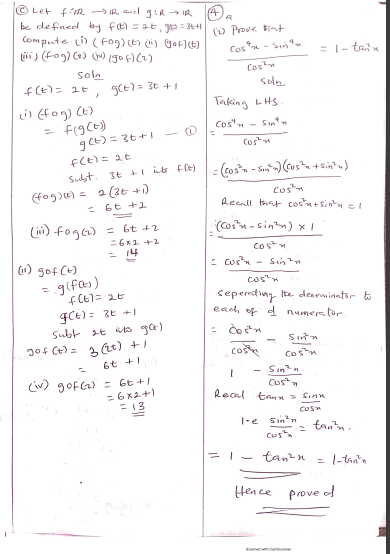 (c) Let f: IR → IR and g: IR → IR
be defined by f(t) = 2t, g(t) = 3t+1
compute (i) (fog)(t) (ii) (gof)(t)
(iii) (fog)(2) (iv) (gof)(2)
Soln
f(t) = 2t, g(t) = 3t+1
(i) (fog)(t)
= f(g(t))
g(t) = 3t+1 — (1)
f(t) = 2t
Subt. 3t+1 into f(t)
(fog)(t) = 2(3t+1)
= 6t+2
(iii) fog(2) = 6t+2
= 6x2+2
= 14
(ii) gof(t)
= g(f(t))
f(t) = 2t
g(t) = 3t+1
Subt 2t into g(t)
gof(t) = 3(2t)+1
= 6t+1
(iv) gof(2) = 6t+1
= 6x2+1
= 13
(4) a
(2) Prove that
cos⁴x - sin⁴x / cos²x = 1 - tan²x
Soln
Taking LHS.
cos⁴x - sin⁴x / cos²x
= (cos²x - sin²x)(cos²x + sin²x) / cos²x
Recall that cos²x + sin²x = 1
= (cos²x - sin²x) x 1 / cos²x
= cos²x - sin²x / cos²x
seperating the denominator to
each of d numerator
= cos²x / cos²x - sin²x / cos²x
1 - sin²x / cos²x
Recal tanx = sinx / cosx
i.e sin²x / cos²x = tan²x.
= 1 - tan²x = 1-tan²x
Hence proved
Scanned with CamScanner